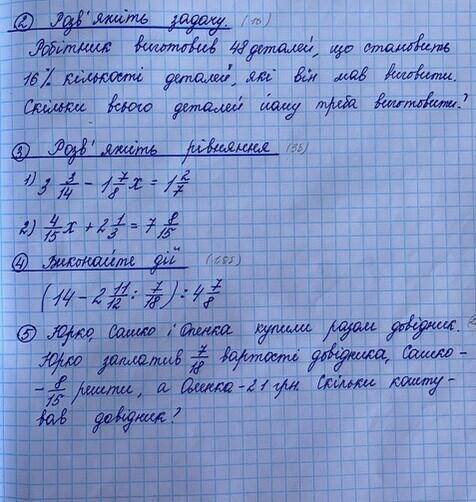 ② Розв'яжіть задачу. (1б)
Робітник виготовив 48 деталей, що становить
16% кількості деталей, які він мав виготовити.
Скільки всього деталей йому треба виготовити?
③ Розв'яжіть рівняння (3б)
1) 3 3/14 - 1 7/8 x = 1 2/7
2) 4/15 x + 2 1/3 = 7 8/15
④ Виконайте дії
(14 - 2 11/12 : 7/18) : 4 7/8
⑤ Юрко, Сашко і Оленка купили разом довідник.
Юрко заплатив 7/18 вартості довідника, Сашко -
- 8/15 решти, а Оленка - 21 грн. Скільки кошту-
вав довідник?